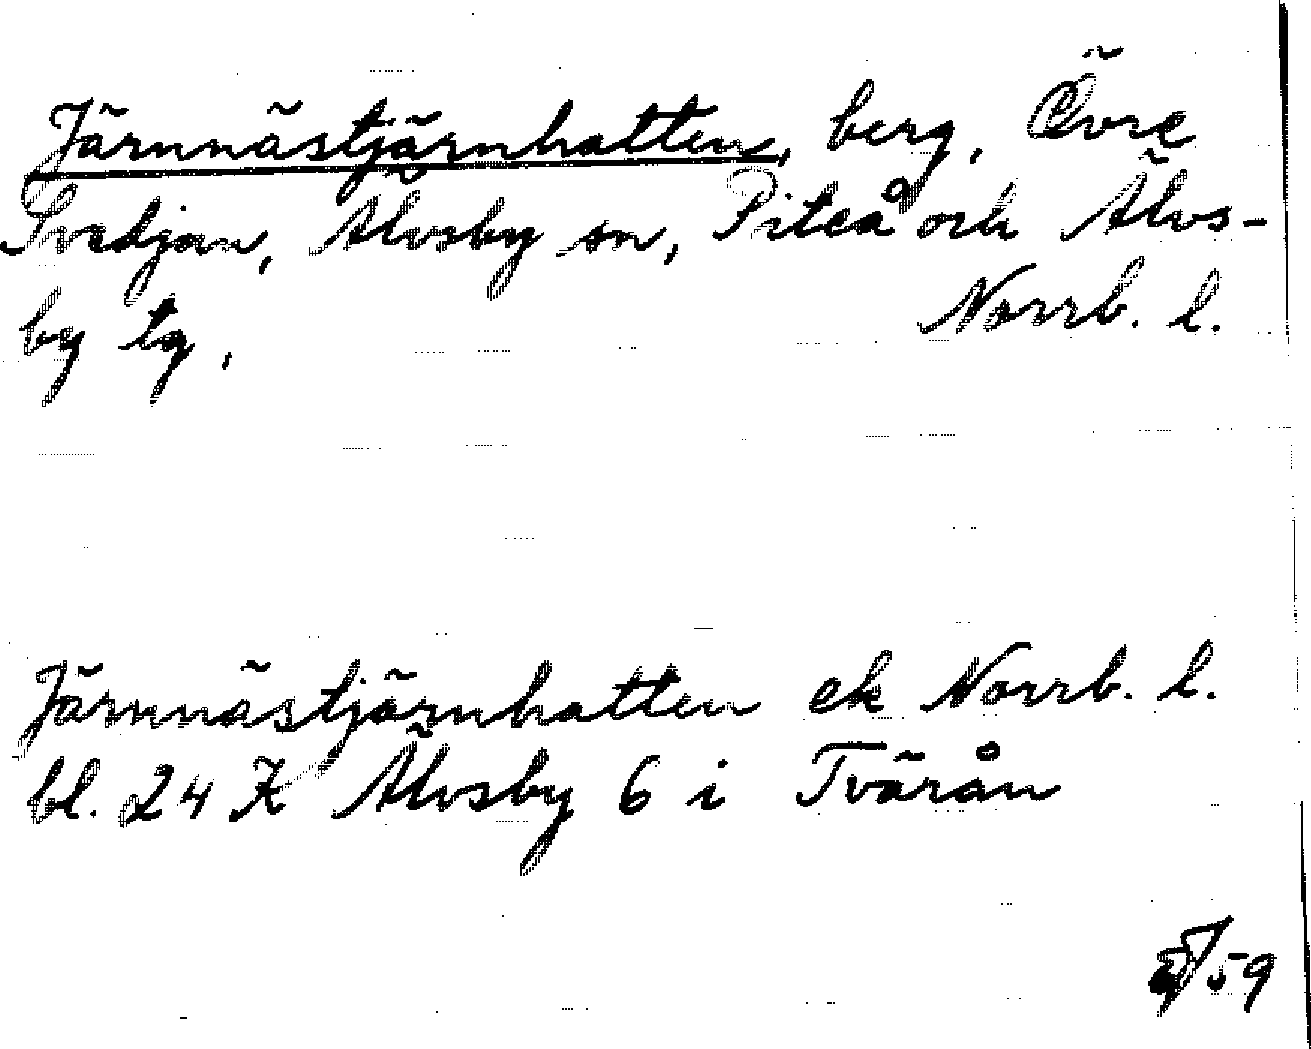 Järnnästjärnhatten, berg, Övre
Svedjan, Älvsby sn, Piteå och Älvs-
by tg, Norrb. l.
Järnnästjärnhatten ek Norrb. l.
bl. 24 K Älvsby 6 i Tvärån
59